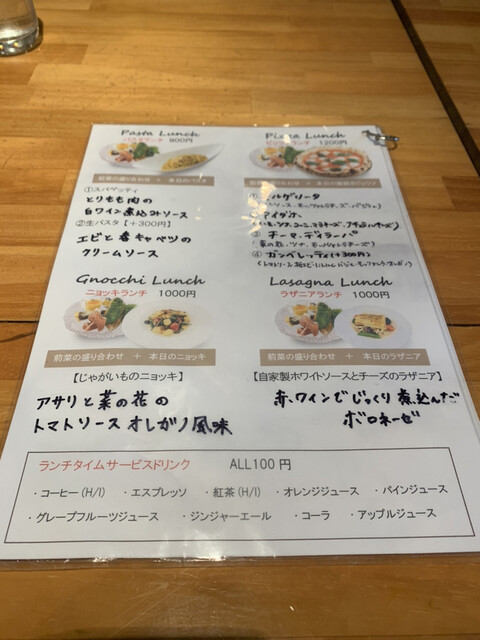 Pasta Lunch
パスタランチ 900円
前菜の盛り合わせ + 本日のパスタ
①スパゲッティ
とりもも肉の
白ワイン煮込みソース
②生パスタ【+300円】
エビと春キャベツの
クリームソース
Pizza Lunch
ピッツァランチ 1200円
前菜の盛り合わせ + 本日の
マルゲリータ
マイダナ
③ チーマ・ディ・ラーパ
(菜の花、ツナ、モッツァレラチーズ)
④ ガンベレッティ(+300円)
Gnocchi Lunch
ニョッキランチ 1000円
前菜の盛り合わせ + 本日のニョッキ
【じゃがいものニョッキ】
アサリと菜の花の
トマトソース オレガノ風味
Lasagna Lunch
ラザニアランチ 1000円
前菜の盛り合わせ + 本日のラザニア
【自家製ホワイトソースとチーズのラザニア】
赤ワインでじっくり煮込んだ
ボロネーゼ
ランチタイムサービスドリンク ALL100円
・コーヒー(H/I) ・エスプレッソ ・紅茶(H/I) ・オレンジジュース ・パインジュース
・グレープフルーツジュース ・ジンジャーエール ・コーラ ・アップルジュース